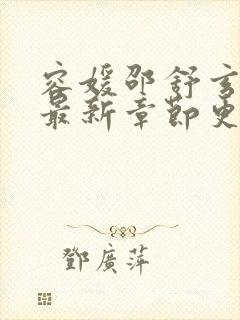 容媛邵舒玄
最新章節更
鄧廣萍